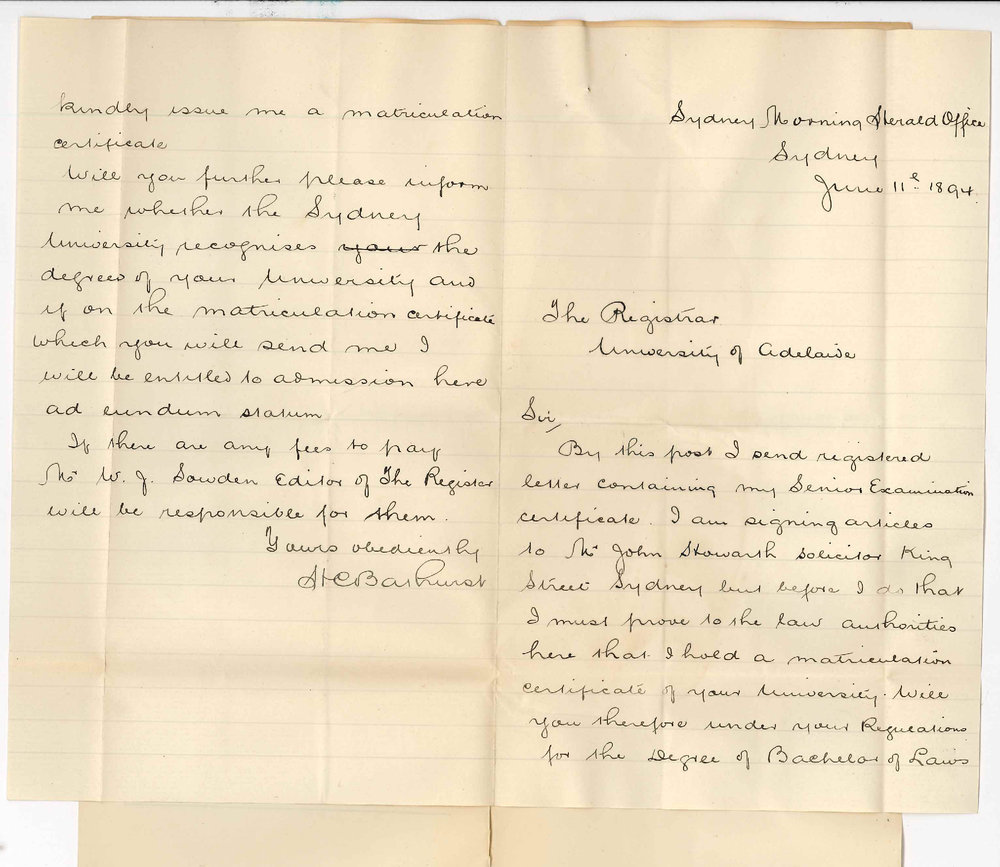 Sydney Morning Herald Office
Sydney
June 11th 1894.
The Registrar
University of Adelaide
Sir,
By this post I send registered
letter containing my Senior Examination
certificate. I am signing articles
to Mr John Howarth solicitor King
Street Sydney but before I do that
I must prove to the law authorities
here that I hold a matriculation
certificate of your University. Will
you therefore under your Regulations
for the Degree of Bachelor of Laws
kindly issue me a matriculation
certificate
Will you further please inform
me whether the Sydney
University recognises your the
degrees of your University and
if on the matriculation certificate
which you will send me I
will be entitled to admission here
ad eundum statum
If there are any fees to pay
Mr W. J. Sowden Editor of The Register
will be responsible for them.
Yours obediently
H C Bathurst